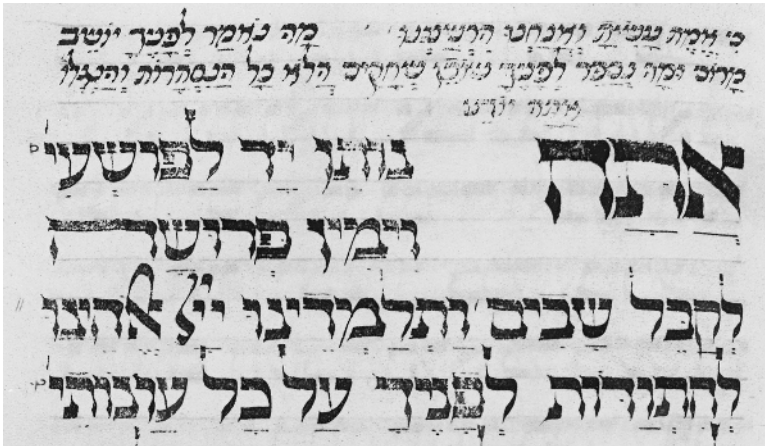 כי אמת עשית ואנחנו הרשענו מה נאמר לפניך יושב
מרום ומה נספר לפניך שוכן שחקים הלא כל הנסתרות והנגלות
אתה יודע
אתה נותן יד לפושעי
וימין פשוטה
לקבל שבים ותלמדינו ייי אלהינו
להתודות לפניך על כל עונותי